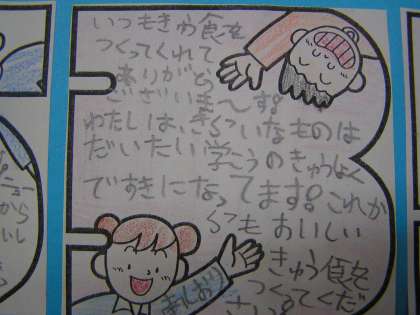 いつもきゅう食を
つくってくれて
ありがとう
ございま〜す。
わたしは、きらいなものは
だいたい学こうのきゅうしょく
ですきになってます。これか
らもおいしい
きゅう食を
つくってくだ
さい。
から
いし